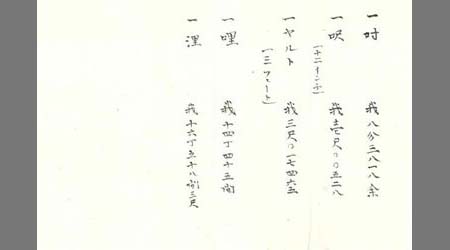 一吋 我八分三八一八余
一呎 (十二インチ) 我壱尺〇〇五二八
一ヤルト (三フート) 我三尺〇一七四六五
一哩 我十四丁四十三間
一浬 我十六丁五十八間三尺